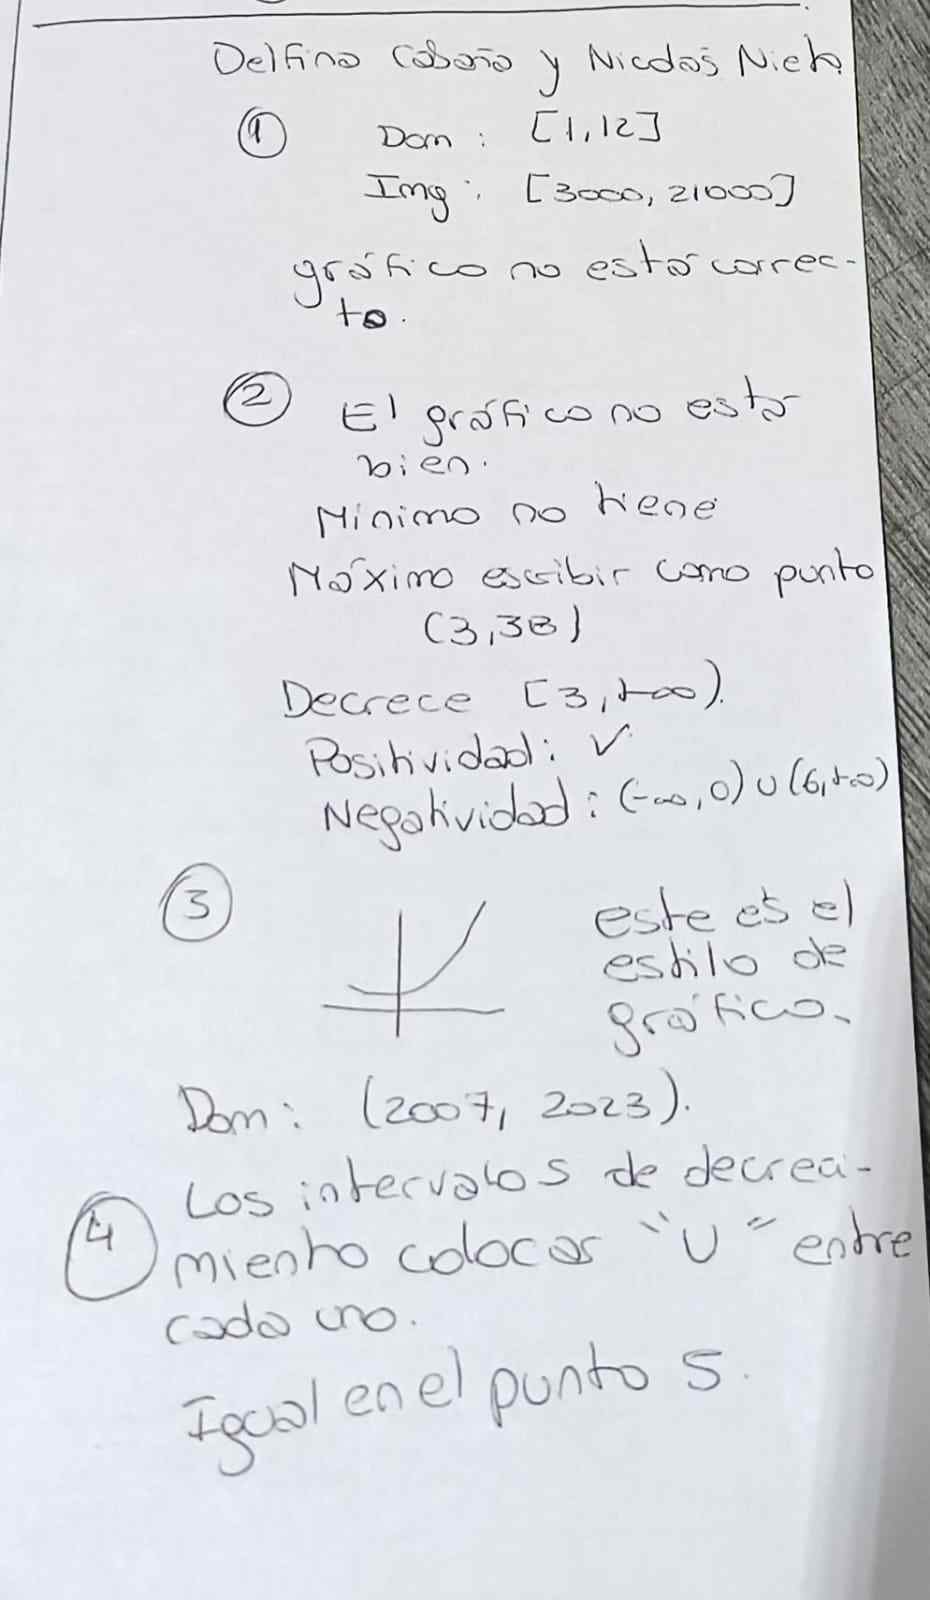 Delfina Cabaña y Nicolás Nieto
① Dom: [1,12]
Img: [3000, 21000]
gráfico no está correc-
to.
② El gráfico no está
bien.
Mínimo no tiene
Máximo escribir como punto
(3,38)
Decrece [3,+∞).
Positividad: ✓
Negatividad: (-∞,0) ∪ (6,+∞)
③ este es el
estilo de
gráfico.
Dom: (2007, 2023).
④ Los intervalos de decreci-
miento colocar "U" entre
cada uno.
Igual en el punto 5.